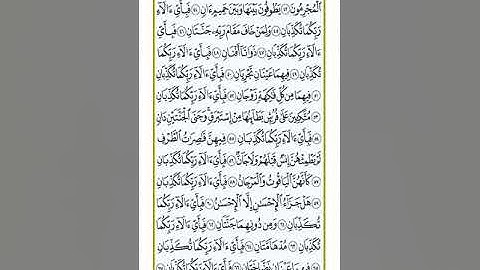 ٱلْمُجْرِمُونَ ۝٤٣ يَطُوفُونَ بَيْنَهَا وَبَيْنَ حَمِيمٍ ءَانٍ ۝٤٤ فَبِأَىِّ ءَالَآءِ
رَبِّكُمَا تُكَذِّبَانِ ۝٤٥ وَلِمَنْ خَافَ مَقَامَ رَبِّهِۦ جَنَّتَانِ ۝٤٦ فَبِأَىِّ
ءَالَآءِ رَبِّكُمَا تُكَذِّبَانِ ۝٤٧ ذَوَاتَآ أَفْنَانٍ ۝٤٨ فَبِأَىِّ ءَالَآءِ رَبِّكُمَا
تُكَذِّبَانِ ۝٤٩ فِيهِمَا عَيْنَانِ تَجْرِيَانِ ۝٥٠ فَبِأَىِّ ءَالَآءِ رَبِّكُمَا تُكَذِّبَانِ
۝٥١ فِيهِمَا مِن كُلِّ فَٰكِهَةٍ زَوْجَانِ ۝٥٢ فَبِأَىِّ ءَالَآءِ رَبِّكُمَا تُكَذِّبَانِ
۝٥٣ مُتَّكِـِٔينَ عَلَىٰ فُرُشٍۭ بَطَآئِنُهَا مِنْ إِسْتَبْرَقٍ ۚ وَجَنَى ٱلْجَنَّتَيْنِ دَانٍ
۝٥٤ فَبِأَىِّ ءَالَآءِ رَبِّكُمَا تُكَذِّبَانِ ۝٥٥ فِيهِنَّ قَٰصِرَٰتُ ٱلطَّرْفِ
لَمْ يَطْمِثْهُنَّ إِنسٌ قَبْلَهُمْ وَلَا جَآنٌّ ۝٥٦ فَبِأَىِّ ءَالَآءِ رَبِّكُمَا تُكَذِّبَانِ
۝٥٧ كَأَنَّهُنَّ ٱلْيَاقُوتُ وَٱلْمَرْجَانُ ۝٥٨ فَبِأَىِّ ءَالَآءِ رَبِّكُمَا تُكَذِّبَانِ
۝٥٩ هَلْ جَزَآءُ ٱلْإِحْسَٰنِ إِلَّا ٱلْإِحْسَٰنُ ۝٦٠ فَبِأَىِّ ءَالَآءِ رَبِّكُمَا
تُكَذِّبَانِ ۝٦١ وَمِن دُونِهِمَا جَنَّتَانِ ۝٦٢ فَبِأَىِّ ءَالَآءِ رَبِّكُمَا
تُكَذِّبَانِ ۝٦٣ مُدْهَآمَّتَانِ ۝٦٤ فَبِأَىِّ ءَالَآءِ رَبِّكُمَا تُكَذِّبَانِ
۝٦٥ فِيهِمَا عَيْنَانِ نَضَّاخَتَانِ ۝٦٦ فَبِأَىِّ ءَالَآءِ رَبِّكُمَا تُكَذِّبَانِ ۝٦٧